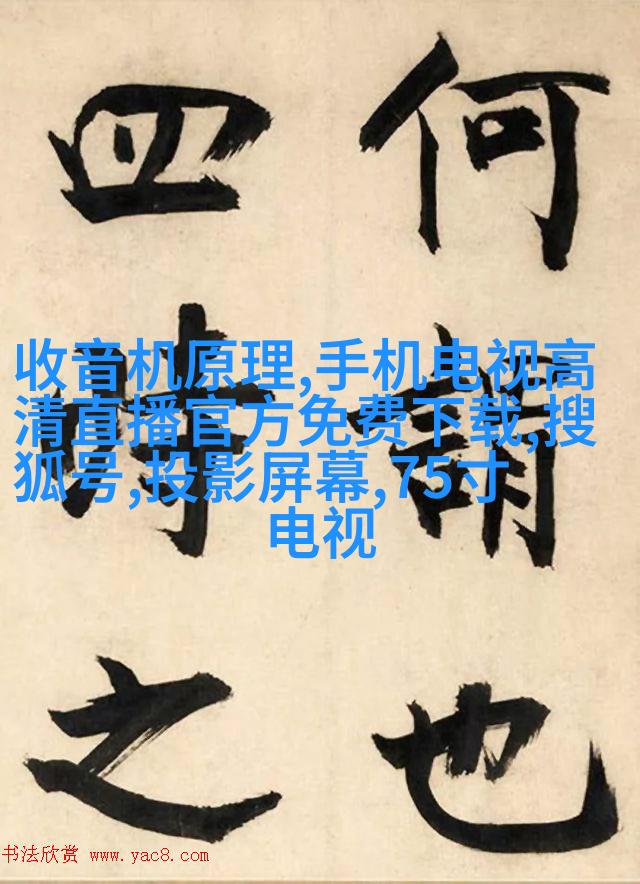 何謂也
四時之
收音机原理,手机电视高
清直播官方免费下载,搜
狐号,投影屏幕,75寸
电视
书法欣赏 www.yac8.com